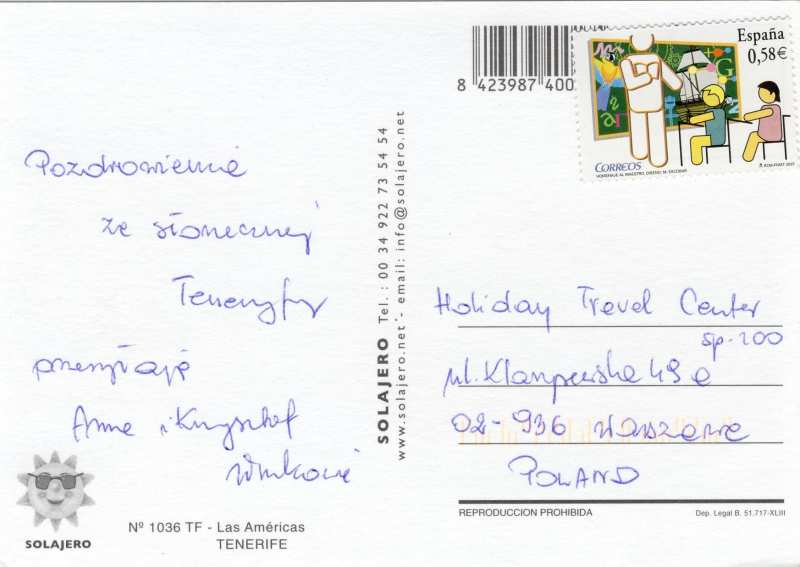 Pozdrowienia
ze słonecznej
Teneryfy
przesyłają
Anna i Krzysztof
8 423987 400
España
0,58€
CORREOS
HOMENAJE AL MAESTRO. DISEÑO: M. ESCOBAR
SOLAJERO Tel.: 00 34 922 73 54 54
www.solajero.net - email: info@solajero.net
Holiday Travel Center
sp. zoo
ul. Klarysewska 49 a
02-936 Warszawa
POLAND
SOLAJERO
Nº 1036 TF - Las Américas
TENERIFE
REPRODUCCION PROHIBIDA
Dep. Legal B. 51.717-XLIII